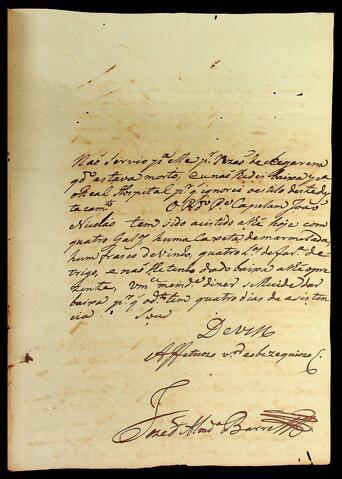 Naõ Servio p.ª elle p.r Rezaõ de chegarem
q̃ d.º estava morto, eu naõ lhe dei baixa p.ª
o Real Hospital p.r q̃ ignoro o estilo deste des
tacam.to O R.do P.e Capelam Joaõ
Nicolao tem sido asistido athe hoje com
quatro Gal.as huma Caxeta de marmelada,
hum Frasco de Vinho, quatro L.as de far.ª de
trigo, e naõ lhe tenho dado baixa athe o pre
zente, Vm.ce mande dizer se lhe eide dar
baixa p.r q̃ od.º tem quatro dias de asisten
cia Sou
De V M
Affetuozo v.or e obrequiozo S.
Joze d Almd.ª Barre